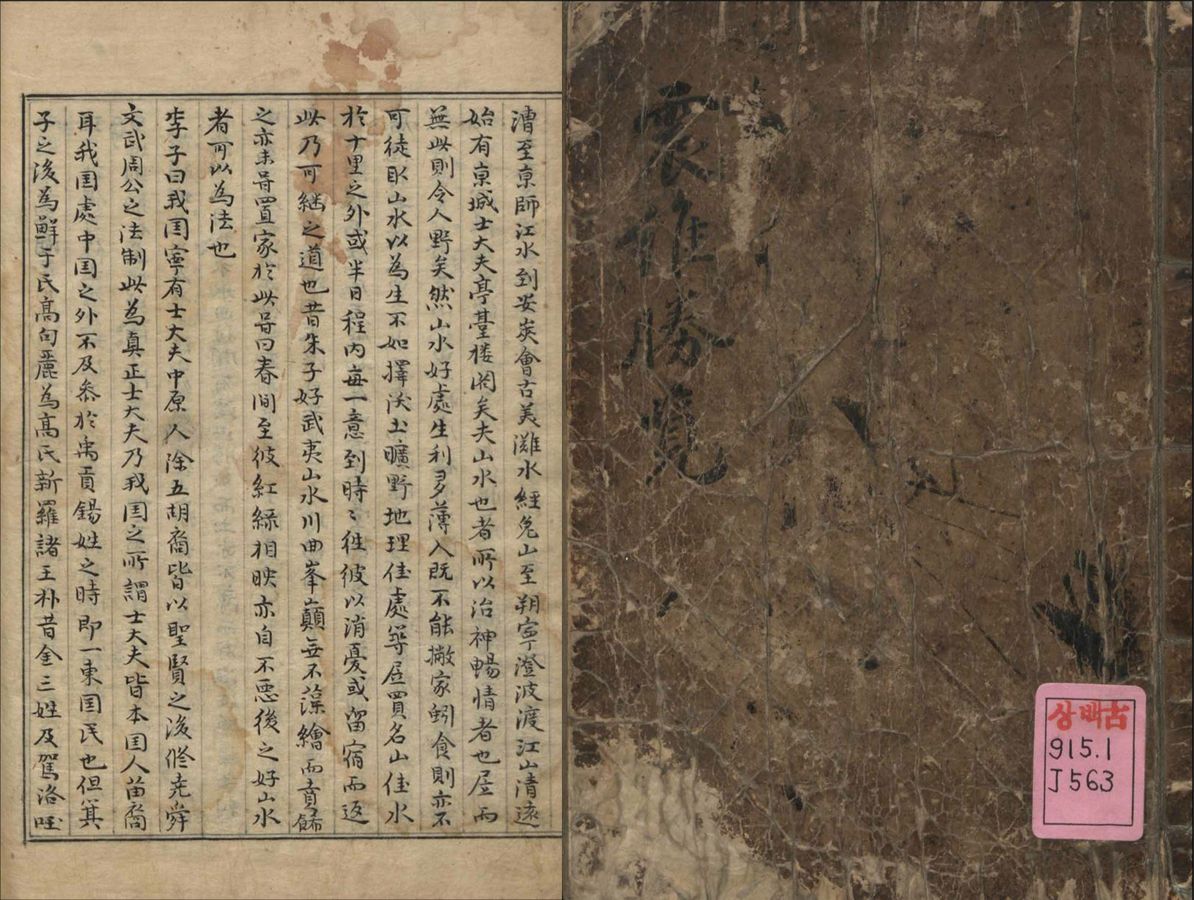 震維勝覽
상백古
915.1
J563
漕至京師江水到安炭會古美灘水經兎山至朔寧澄波渡江山清遠
始有京城士大夫亭臺楼閣矣夫山水也者所以治神暢情者也居而
無此則令人野矣然山水好處生利多薄人既不能撇家蚓食則亦不
可徒取山水以為生不如擇沃土曠野地理佳處築居買名山佳水
於十里之外或半日程内每一意到時〻徃彼以消憂或留宿而返
此乃可継之道也昔朱子好武夷山水川曲峯巓無不藻繪而賁餙
之亦未甞置家於此甞曰春間至彼紅緑相映亦自不悪後之好山水
者可以為法也
李子曰我囯寧有士大夫中原人除五胡裔皆以聖賢之後修尭舜
文武周公之法制此為真正士大夫乃我囯之所謂士大夫皆本囯人苗裔
耳我囯處中囯之外不及叅於禹貢錫姓之時即一東囯民也但箕
子之後為鮮于氏高句麗為高氏新羅諸王朴昔金三姓及駕洛